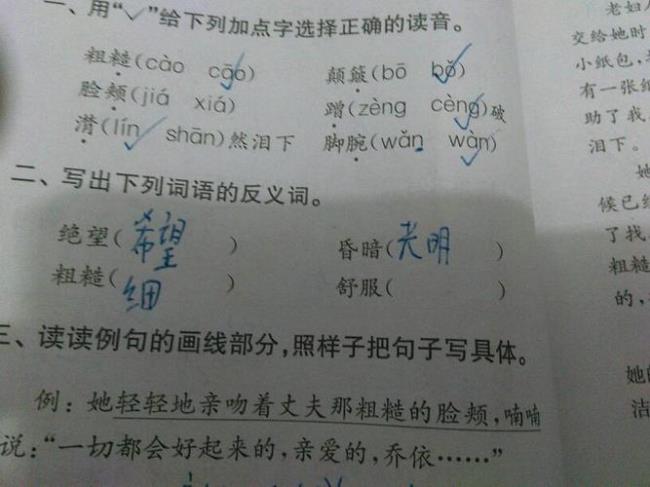 一、用“✓”给下列加点字选择正确的读音。
粗糙(cào cāo) 颠簸(bō bǒ)
脸颊(jiá xiá) 蹭(zèng cèng)破
潸(lín shān)然泪下 脚腕(wǎn wàn)
二、写出下列词语的反义词。
绝望(希望) 昏暗(光明)
粗糙(细) 舒服( )
三、读读例句的画线部分,照样子把句子写具体。
例：她轻轻地亲吻着丈夫那粗糙的脸颊,喃喃
说：“一切都会好起来的,亲爱的,乔依……”
老妇人
交给她时
小纸包,
有一张纸
助了我
泪下。
她
候已经
了找
粗糙
的,
她的
洁